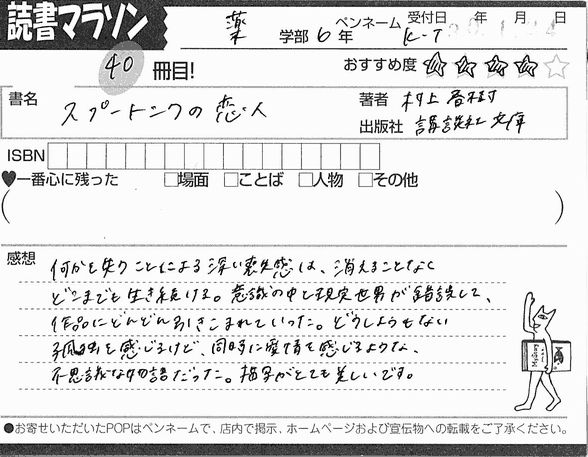 読書マラソン
薬 学部 6 年 ペンネーム K-T 受付日 年 月 日
40 冊目! おすすめ度
書名 スプートニクの恋人 著者 村上春樹
出版社 講談社文庫
ISBN
♥一番心に残った □場面 □ことば □人物 □その他
( )
感想 何かを失うことによる深い喪失感は、消えることなく
どこまでも生き続ける。意識の中と現実世界が錯誤して、
作品にどんどん引きこまれていった。どうしようもない
孤独を感じるけど、同時に愛情を感じるような、
不思議な物語だった。描写がとても美しいです。
●お寄せいただいたPOPはペンネームで、店内で掲示、ホームページおよび宣伝物への転載をご了承ください。